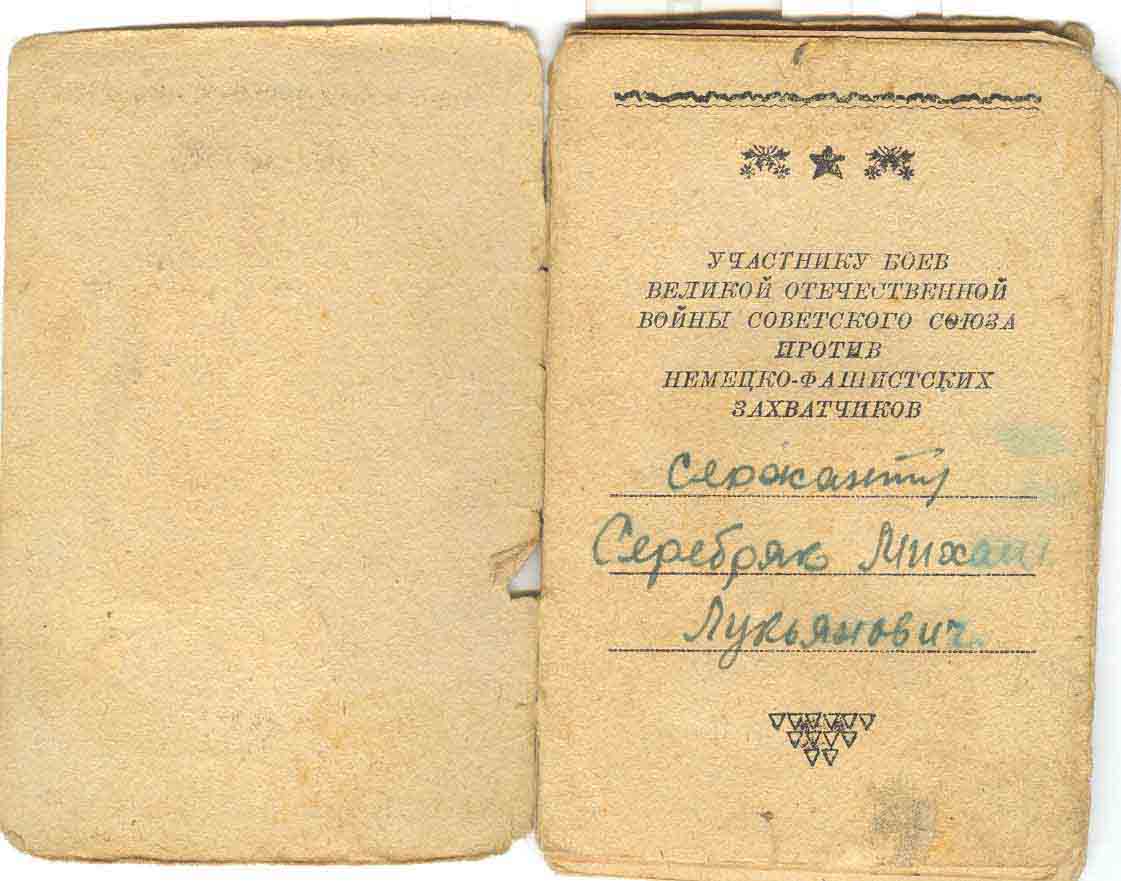 УЧАСТНИКУ БОЕВ
ВЕЛИКОЙ ОТЕЧЕСТВЕННОЙ
ВОЙНЫ СОВЕТСКОГО СОЮЗА
ПРОТИВ
НЕМЕЦКО-ФАШИСТСКИХ
ЗАХВАТЧИКОВ
Сержанту
Серебряк
Лукьянович.